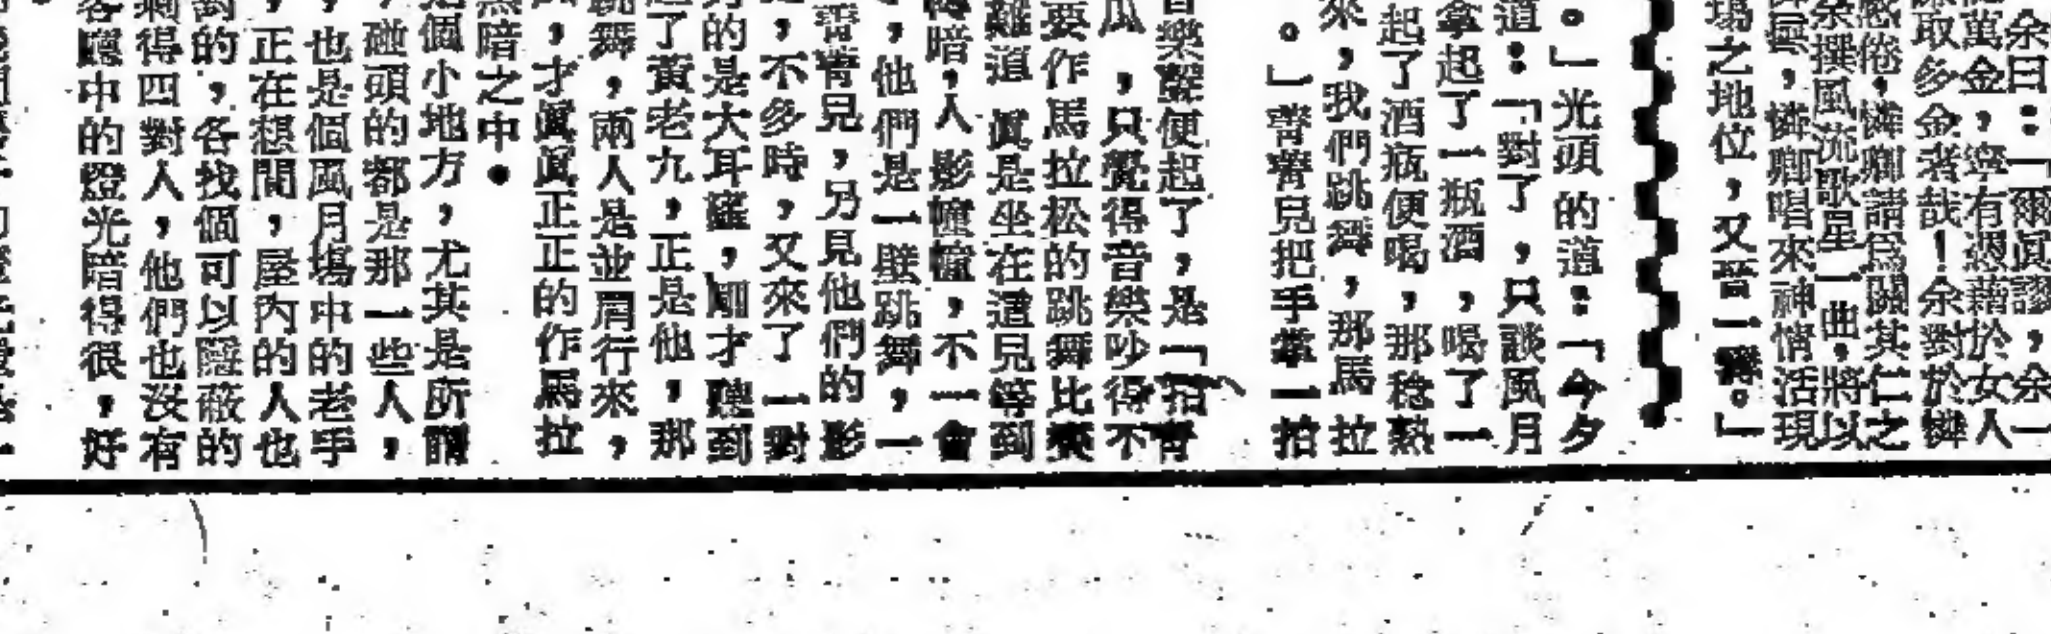 余曰：「爾眞謬，余一
萬金，寧有憑藉於女人
取多金者哉！余對於憐
感倦，憐卿請爲關其仁之
余撰風流歌星一曲，將以
，憐卿唱來神情活現
場之地位，又晉一步。」
。」光頭的道：「今夕
道：「對了，只談風月
拿起了一瓶酒，喝了一
起了酒瓶便喝，那稔熟
來，我們跳舞，那馬拉
。」菁菁兒把手掌一拍
音樂聲便起了，是「拍青
瓜，只覺得音樂吵得不
要作馬拉松的跳舞比賽
難道眞是坐在這兒等到
暗，人影幢幢，不一會
，他們是一雙跳舞，一
菁菁兒，另見他們的影
，不多時，又來了一對
的是大耳窿，剛才聽到
了黃老九，正是他，那
跳舞，兩人是並肩行來，
，才眞眞正正的作馬拉
黑暗之中。
個小地方，尤其是所謂
碰頭的都是那一些人，
，也是個風月場中的老手
，正在想間，屋內的人也
的，各找個可以隱蔽的
剩得四對人，他們也沒有
客廳中的燈光暗得很，好